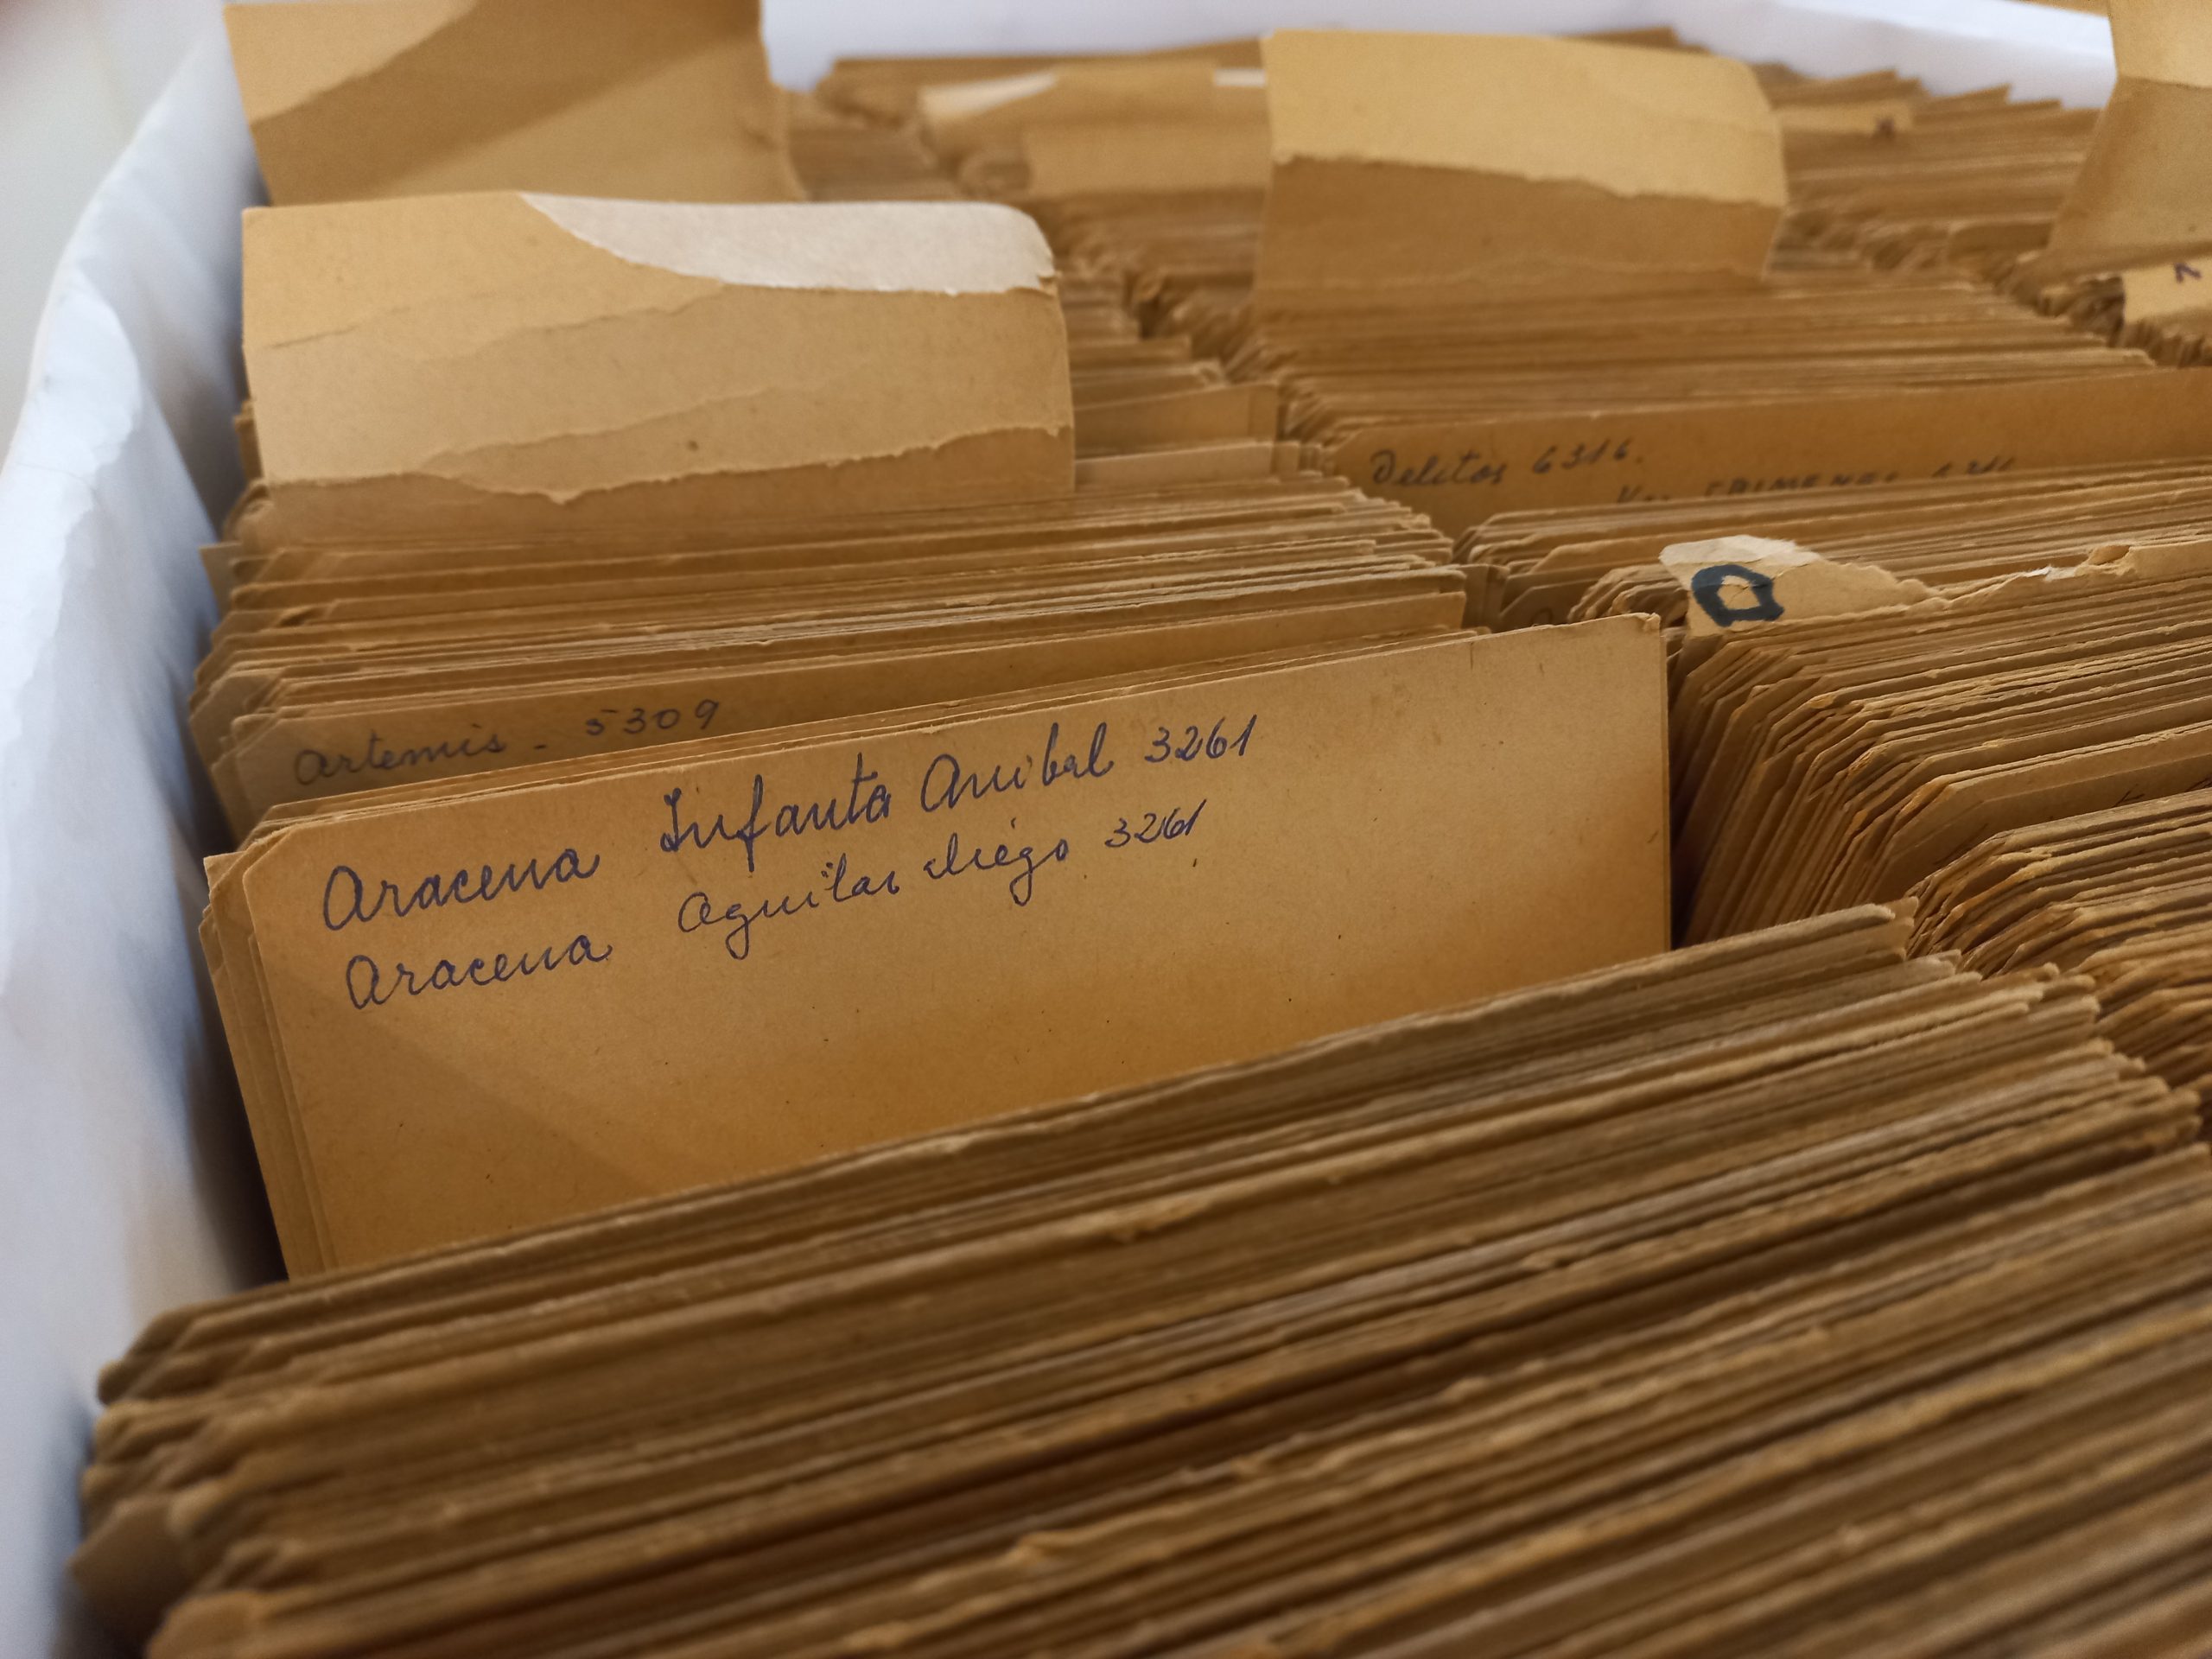 Delitos 6316.
D
Artemis - 5309
Aracena Infanta Anibal 3261
Aracena Aguilar Diego 3261